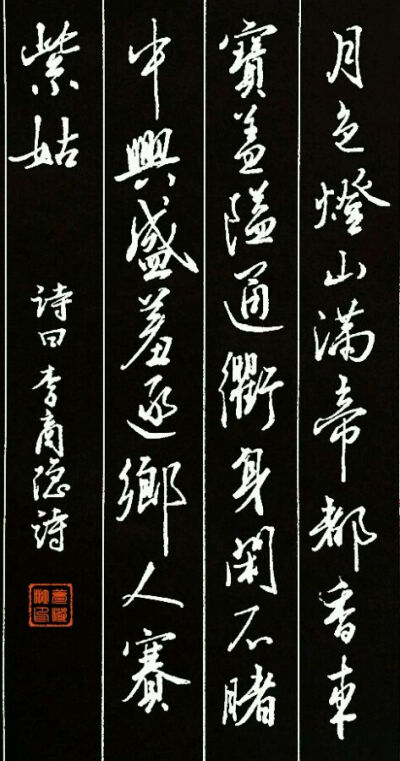 月色燈山满帝都香車
寶盖隘通衢身閑不睹
中興盛羞逐鄉人賽
紫姑
诗曰李商隐诗